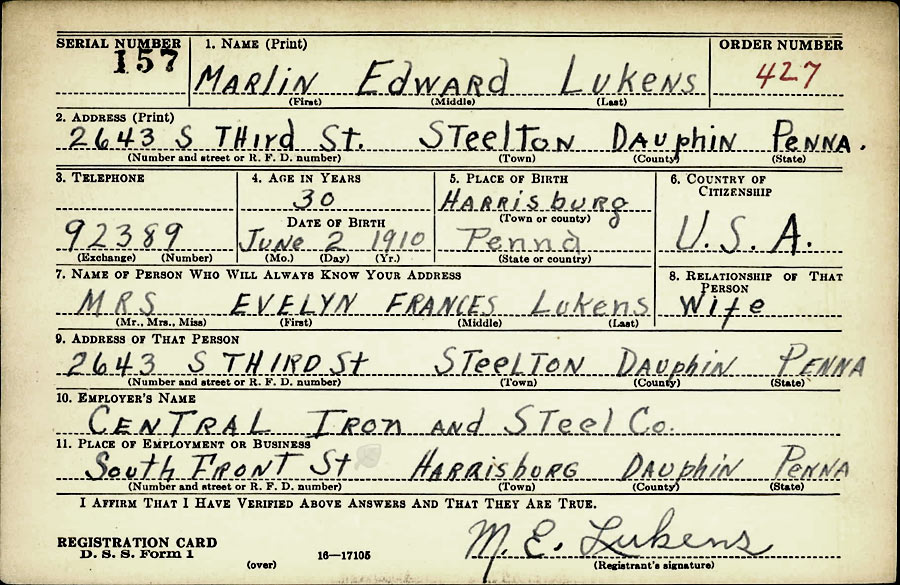 SERIAL NUMBER 1. NAME (Print) ORDER NUMBER
157 MARLIN EDWARD LUKENS 427
(First) (Middle) (Last)
2. ADDRESS (Print)
2643 S THird ST. STeelTon DAuphin PENNA.
(Number and street or R. F. D. number) (Town) (County) (State)
3. TELEPHONE 4. AGE IN YEARS 5. PLACE OF BIRTH 6. COUNTRY OF CITIZENSHIP
30 HARRISburg
DATE OF BIRTH (Town or county)
92389 June 2 1910 Penna U.S.A.
(Exchange) (Number) (Mo.) (Day) (Yr.) (State or country)
7. NAME OF PERSON WHO WILL ALWAYS KNOW YOUR ADDRESS 8. RELATIONSHIP OF THAT PERSON
MRS EVELYN FRANCES Lukens Wife
(Mr., Mrs., Miss) (First) (Middle) (Last)
9. ADDRESS OF THAT PERSON
2643 S THIRD St STEELTON DAuphin PENNA
(Number and street or R. F. D. number) (Town) (County) (State)
10. EMPLOYER'S NAME
CENTRAL Iron AND STeel Co.
11. PLACE OF EMPLOYMENT OR BUSINESS
South FRONT St HARRISBURG DAuphin PENNA
(Number and street or R. F. D. number) (Town) (County) (State)
I AFFIRM THAT I HAVE VERIFIED ABOVE ANSWERS AND THAT THEY ARE TRUE.
REGISTRATION CARD
D. S. S. Form 1 16—17105 M. E. Lukens
(over) (Registrant's signature)